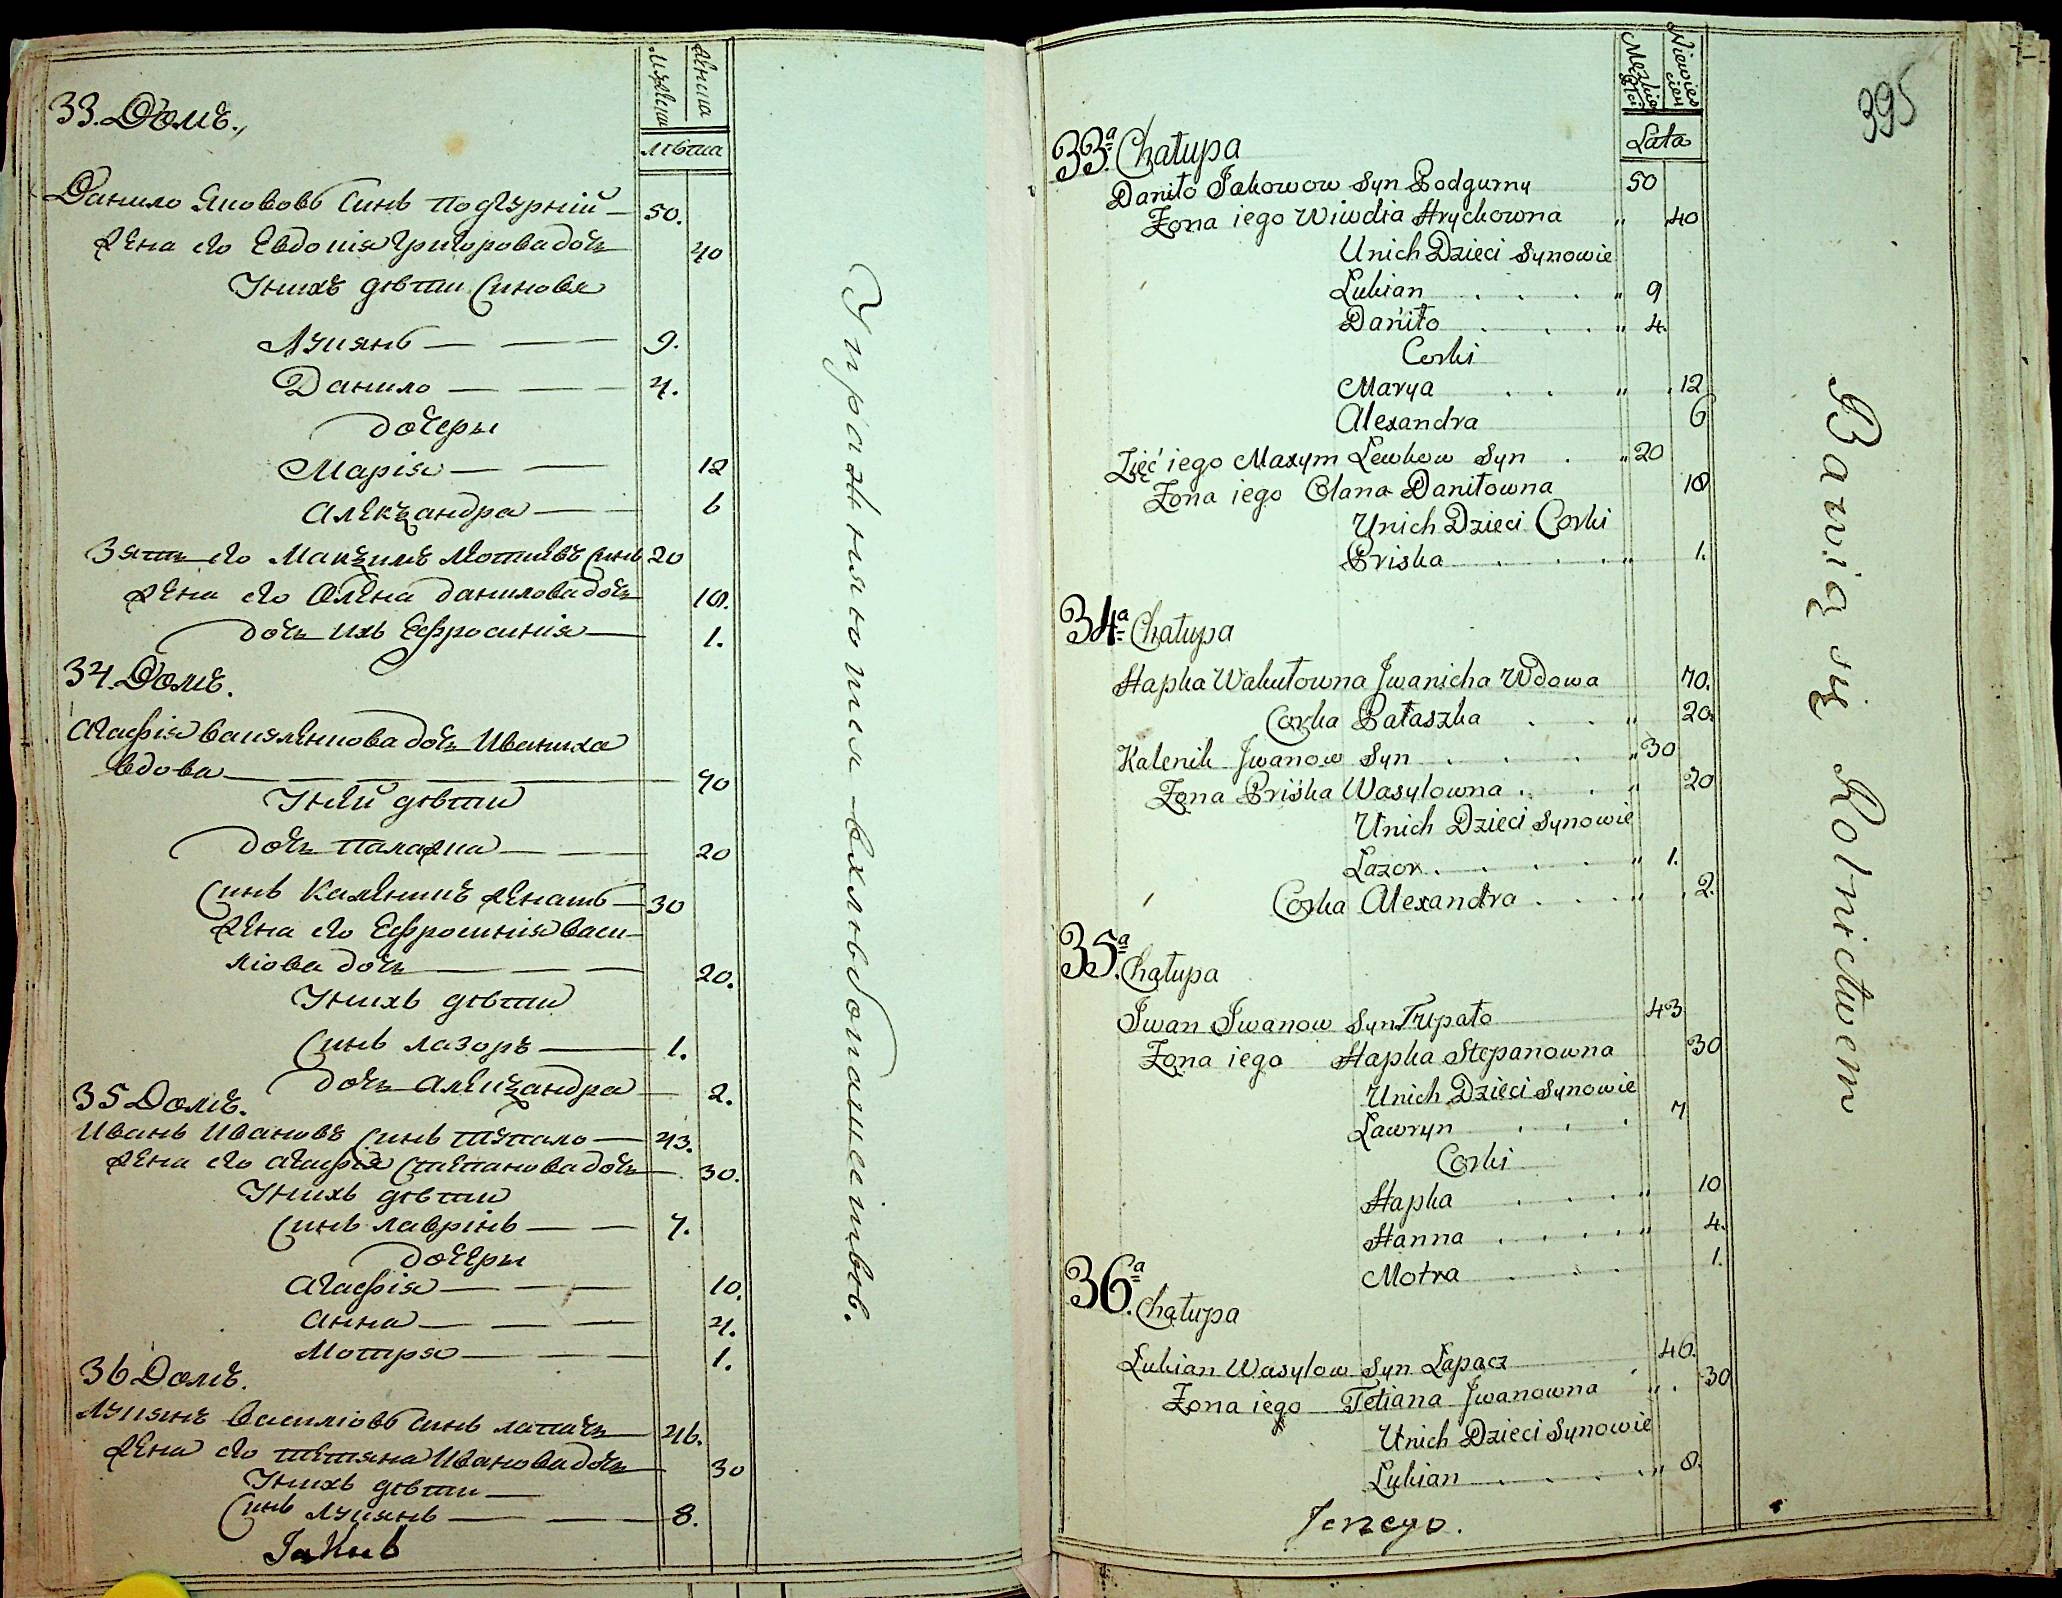 мужеска
женска
лѣта
33. Домъ.
Данило Яковов Синъ подгурній — 50.
жена его Евдокія Григорова дочь 40
У нихъ дѣти Синовя
Лукянъ — — — 9.
Данило — — — 4.
дочеры
Марія — — 12
Александра — — 6
Зять его Макъзимъ Лютковъ Синъ 20
жена его Олена данилова дочь 18.
дочь ихъ Ефросинія — 1.
34. Домъ.
Агафія вакуленкова дочь Иваниха
вдова — — — — — 70
У ней дѣти
дочь палажка — — 20
Синъ Каленикъ женатъ — 30
жена его Ефросинія Васи-
ліова дочь — — — 20.
У нихъ дѣти
Синъ лазоръ — 1.
дочь Александра — 2.
35 Домъ.
Иванъ Ивановъ Синъ тупало — 43.
жена его агафія Степанова дочь — 30.
У нихъ дѣти
Синъ лаврінъ — — 7.
дочеры
агафія — — — 10.
анна — — — 4.
Мотря — — — 1.
36 Домъ.
Лукянъ Василіовъ Синъ лапачъ — 46.
жена его тетяна Иванова дочь — 30
У нихъ дѣти —
Синъ лукянъ — — — 8.
Упражняютися в хлѣбопашествѣ.
395
Męzkie
Niewiesciey
Lata
33.ª Chałupa
Daniło Jakowow Syn Podgurny 50
Zona iego Wiwdia Hryckowna „ 40
Unich Dzieci Synowie
Lukian . . . „ 9
Daniło . . . „ 4.
Corki
Marya . . „ . 12
Alexandra 6
Zięć iego Maxym Lewkow Syn . „ 20
Zona iego Olana Daniłowna 18
Unich Dzieci Corki
Priska . . . „ 1.
34.ª Chałupa
Hapka Wakułowna Jwanicha Wdowa 70.
Corka Pałaszka . . „ 20.
Kalenik Jwanow Syn . . . „ 30
Zona Priska Wasylowna . . „ 20
Unich Dzieci Synowie
Lazor . . . . „ 1.
Corka Alexandra . . . „ . 2.
35.ª Chałupa
Jwan Jwanow Syn Tupało 43
Zona iego Hapka Stepanowna 30
Unich Dzieci Synowie
Lawryn . . . 7
Corki
Hapka . . . „ 10
Hanna . . . . „ 4.
Motra . . . 1.
36.ª Chałupa
Lukian Wasylow Syn Łapacz 46.
Zona iego Tetiana Jwanowna „ . 30
Unich Dzieci Synowie
Lukian . . . . „ 8.
Bawią się Rolnictwem